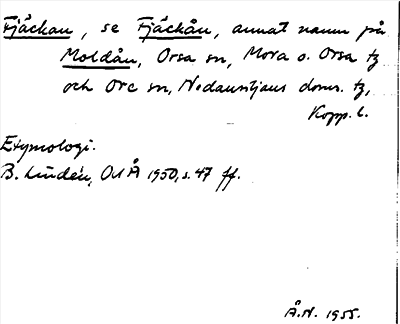 Fjäckan, se Fjäckån, annat namn på
Moldån, Orsa sn, Mora o. Orsa tg
och Ore sn, Nedansiljans doms. tg,
Kopp. l.
Etymologi.
B. Lindén, OUÅ 1950, s. 47 ff.
Å.H. 1955.